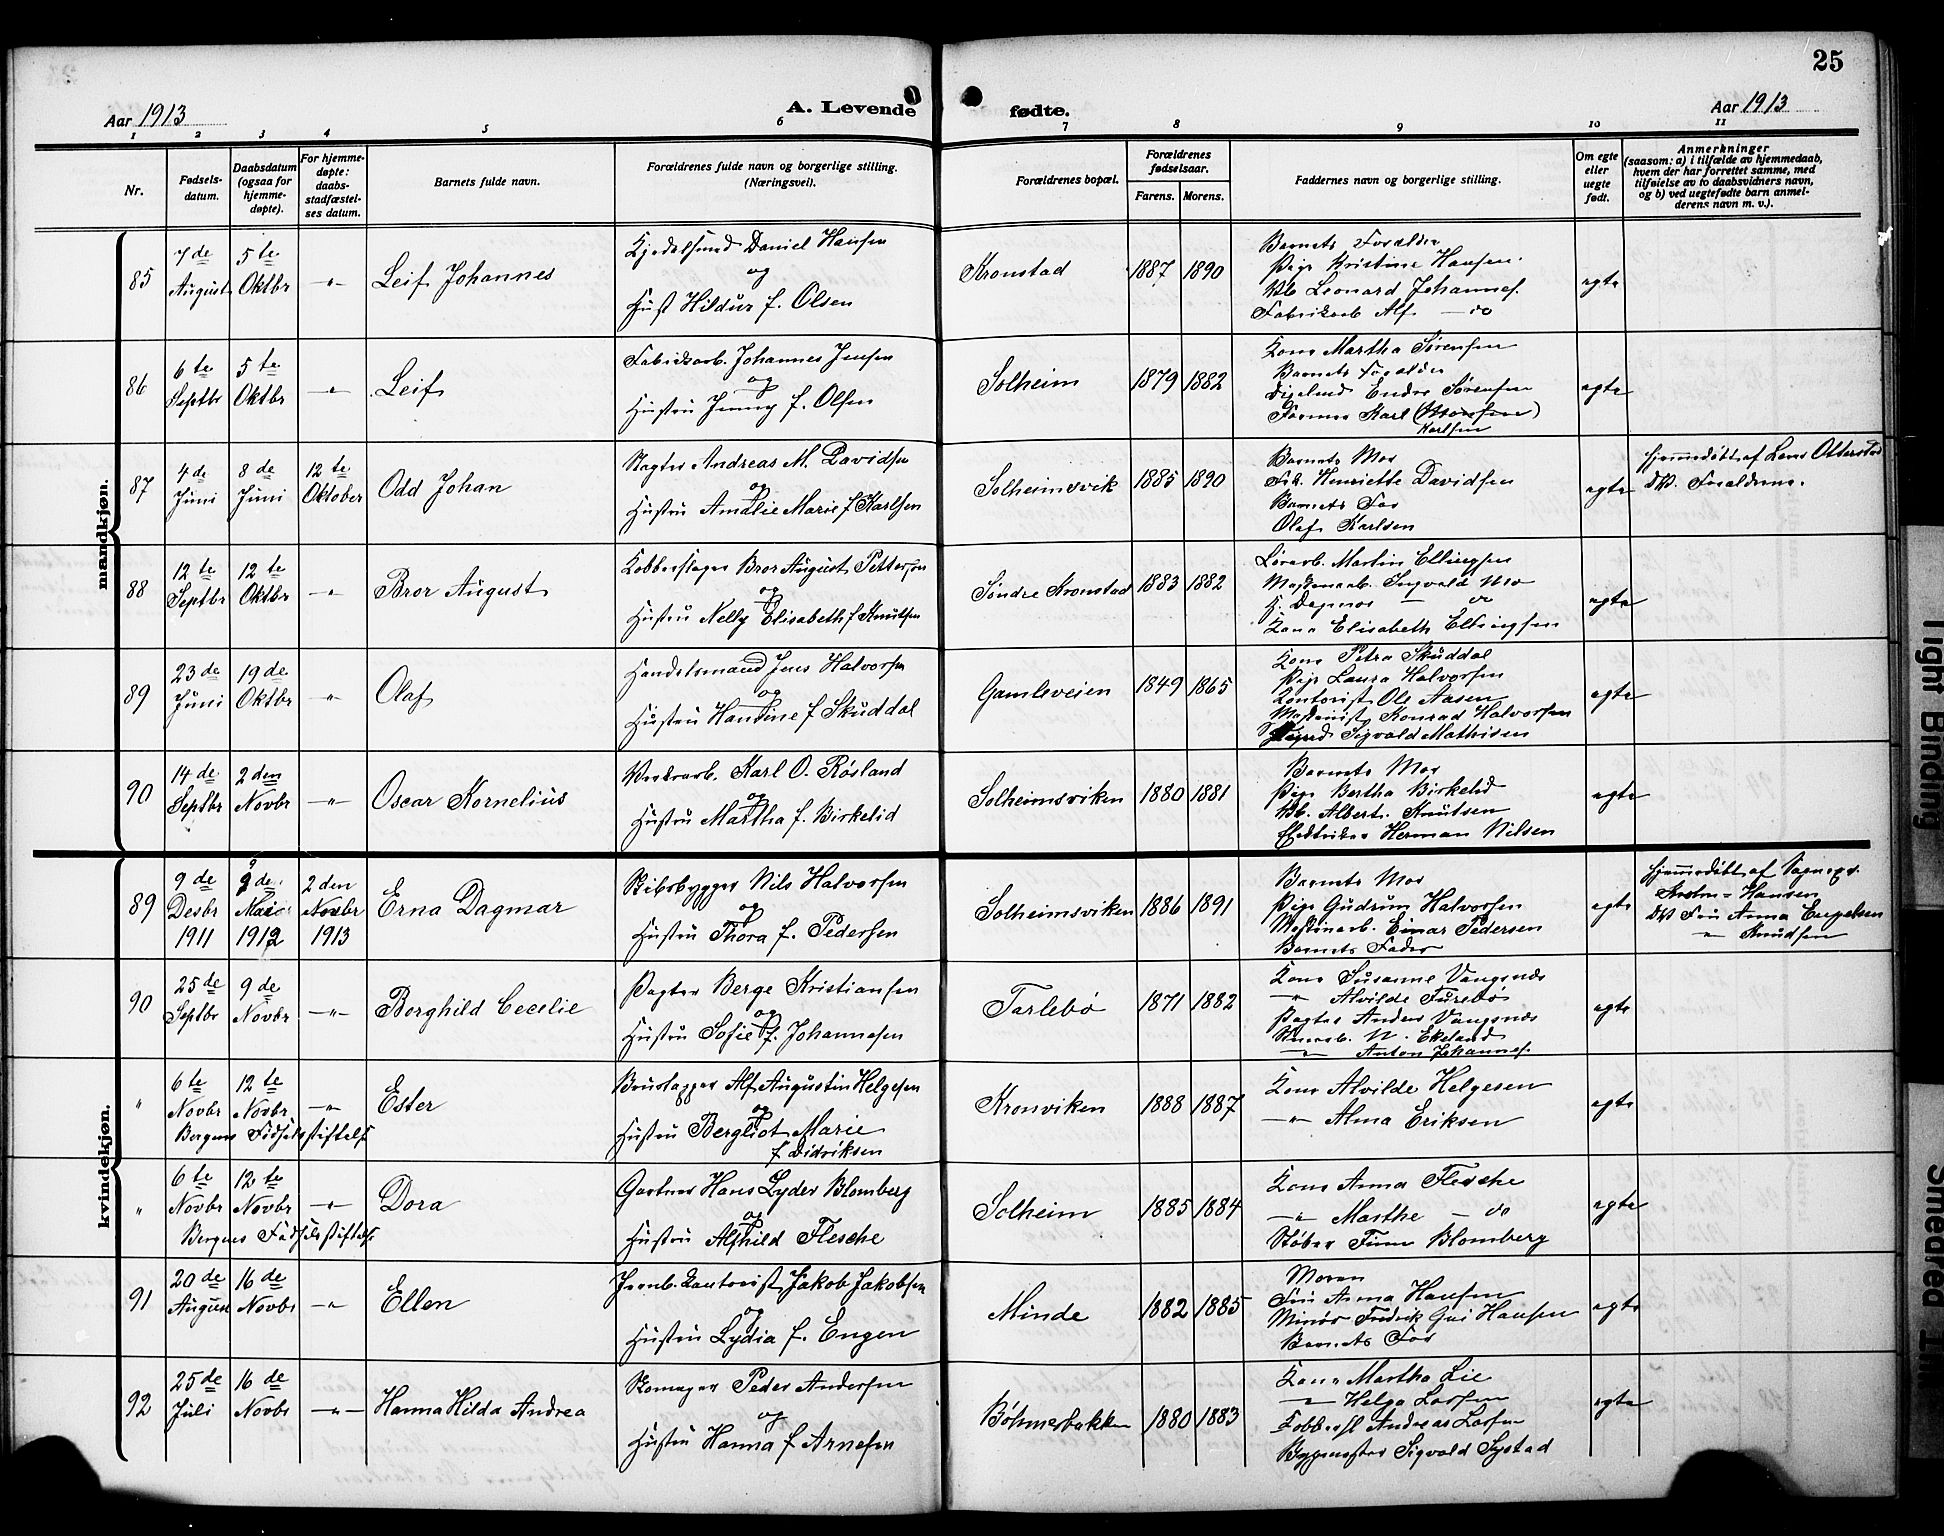 25
Aar 1913
A. Levende fødte.
Aar 1913
1 2 3 4 5 6 7 8 9 10 11
Nr.
Fødsels-
datum.
Daabsdatum
(ogsaa for
hjemme-
døpte).
For hjemme-
døpte:
daabs-
stadfæstel-
ses datum.
Barnets fulde navn.
Forældrenes fulde navn og borgerlige stilling.
(Næringsvei).
Forældrenes bopæl.
Forældrenes
fødselsaar.
Farens. Morens.
Faddernes navn og borgerlige stilling.
Om egte
eller
uegte
født.
Anmerkninger
(saasom: a) i tilfælde av hjemmedaab,
hvem der har forrettet samme, med
tilføielse av to daabsvidners navn,
og b) ved uegtefødte barn anmel-
derens navn m. v.).
mandkjøn.
85
7de
August
5te
Oktbr
-"-
Leif Johannes
Daniel Hansen
og
Hust Hildur f. Olsen
Kronstad
1887 1890
Barnets Forældre
Pige Kristine Hansen.
Leonard Johannes
Fabrikarb Alf - do
egte
86
6te
Septbr
5te
Oktbr
-"-
Leif
Fabrikarb. Johannes Jensen
og
Hustru Jenny f. Olsen
Solheim
1879 1882
Kone Martha Sørensen
Barnets Forældre
Endre Sørensen
Karl (Monsen)
Karlsen
egte
87
4de
Juni
8de
Juni
12te
Oktober
Odd Johan
Andreas M. Davidsen
og
Hustru Amalie Marie f Karlsen
Solheimsvik
1885 1890
Barnets Mor
Frk. Henriette Davidsen
Barnets Far
Olaf Karlsen
egte
Hjemmedøbt af Otterstad
DV. Forældrene.
88
12te
Septbr
12te
Oktbr
-"-
Bror August
Kobberslager Bror August Pettersen
og
Hustru Nelly Elisabeth f Knutsen
Søndre Kronstad
1883 1882
Martin Ellingsen
Maskinarb. Ingvald Mo
H. Dagmar - do
Kone Elisabeth Ellingsen
egte
89
23de
Juni
19de
Oktbr
-"-
Olaf
Handelsmand Jens Halvorsen
og
Hustru Handine f Skuddal
Gamleveien
1849 1865
Kone Petra Skuddal
Pige Laura Halvorsen
Kontorist Ole Aasen
Maskinist Konrad Halvorsen
Sigvald Mathisen
egte
90
14de
Septbr
2den
Novbr
-"-
Oscar Kornelius
Verksarb. Karl O. Røsland
og
Hustru Martha f. Birkelid
Solheimsviken
1880 1881
Barnets Mor
Pige Bertha Birkelid
Albert Knutsen
Elektriker Herman Nilsen
egte
kvindekjøn.
89
9de
Desbr
1911
9de
Mai
1912
2den
Novbr
1913
Erna Dagmar
Skibsbygger Nils Halvorsen
og
Hustru Thora f. Pedersen
Solheimsviken
1886 1891
Barnets Mor
Pige Gudrun Halvorsen
Maskinarb. Einar Pedersen
Barnets Fader
egte
Hjemmedøbt af Sognepr.
Hansen
DV Fru Anna Engelsen
-"- Knudsen
90
25de
Septbr
9de
Novbr
-"-
Borghild Cecelie
Pagter Berge Kristiansen
og
Hustru Sofie f. Johannesen
Tarlebø
1871 1882
Kone Susanne Vangsnæs
-"- Alvilde Furebø
Pagter Anders Vangsnæs
N. Ekeland
-"- Anton Johannes.
egte
"
6te
Novbr
12te
Novbr
-"-
Bergens Fødselsstiftelse
Ester
Brustapper Alf Augustin Helgesen
og
Hustru Bergliot Marie
f Didriksen
Kronviken
1888 1887
Kone Alvilde Helgesen
-"- Alma Eriksen
egte
"
6te
Novbr
12te
Novbr
-"-
Bergens Fødselsstiftelse
Dora
Gartner Hans Lyder Blomberg
og
Hustru Alfhild Flesche
Solheim
1885 1884
Kone Anna Flesche
-"- Marthe - do
Støber Finn Blomberg
egte
91
20de
August
16de
Novbr
-"-
Ellen
Jernb. Kontorist Jakob Jakobsen
og
Hustru Lydia f. Engen
Minde
1882 1885
Moren
Fru Anna Hansen
Fredrik Gui Hansen
Barnets Far
egte
92
25de
Juli
16de
Novbr
-"-
Hanna Hilda Andrea
Skomager Peder Andersen
og
Hustru Hanna f Arnesen
Bøhmesbakken
1880 1883
Kone Martha Lie
-"- Helga Larsen
Kobbersl Andreas Larsen
Bygmester Sigvald Systad
egte
Tight Binding
Smeared Ink